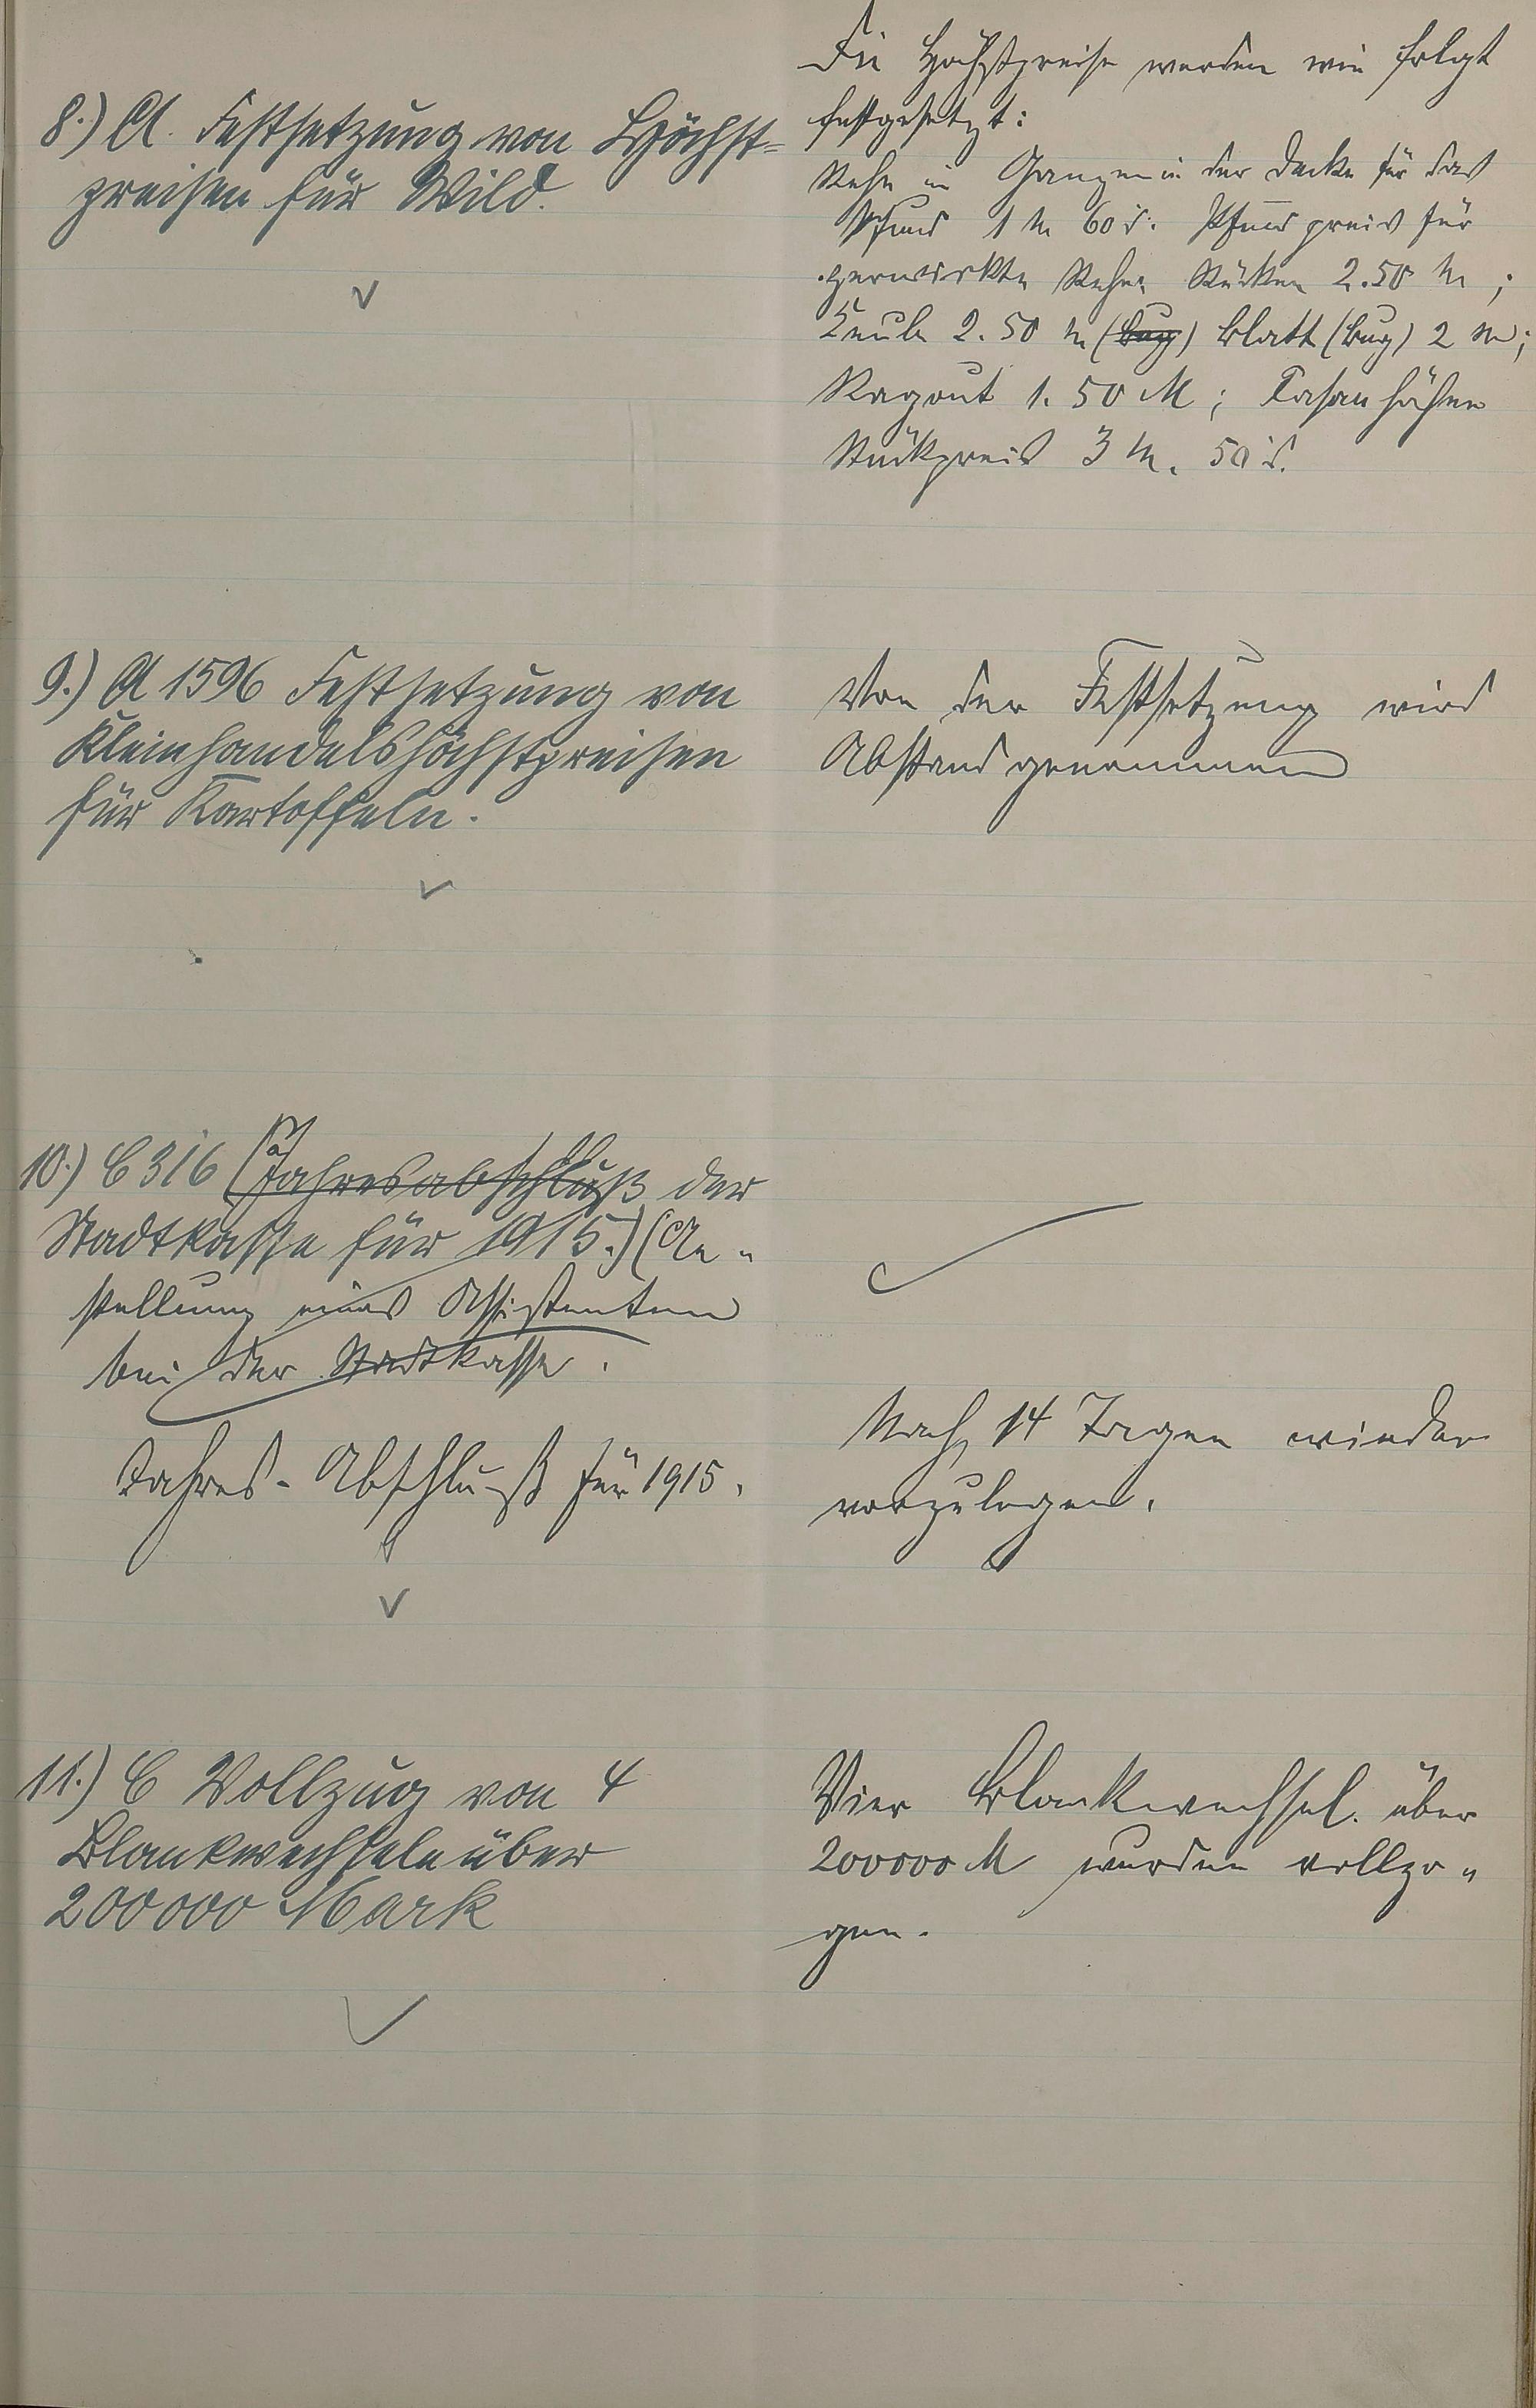 8.) A. Festsetzung von Höchst=
preisen für Wild.
Die Höchstpreise werden wie folgt
festgesetzt:
Rehe im Ganzen in der Decke für das
Pfund 1 M 60 ₰. Pfundpreis für
zerwirkte Rehe: Rücken 2.50 M;
Keule 2.50 M (Bug) Blatt (Bug) 2 M;
Ragout 1.50 M; Fasanhähne
Stückpreis 3 M. 50 ₰.
9.) A 1596 Festsetzung von
Kleinhandelshöchstpreisen
für Kartoffeln.
Von der Festsetzung wird
Abstand genommen
10.) C 316 (Jahresabschluß der
Stadtkasse für 1915.) (An-
stellung eines Assistenten
bei der Stadtkasse.
Jahres-Abschluß für 1915.
Nach 14 Tagen wieder
vorzulegen.
11.) C Vollzug von 4
Blankwechseln über
200000 Mark
Vier Blankwechsel über
200000 M wurden vollzo-
gen.